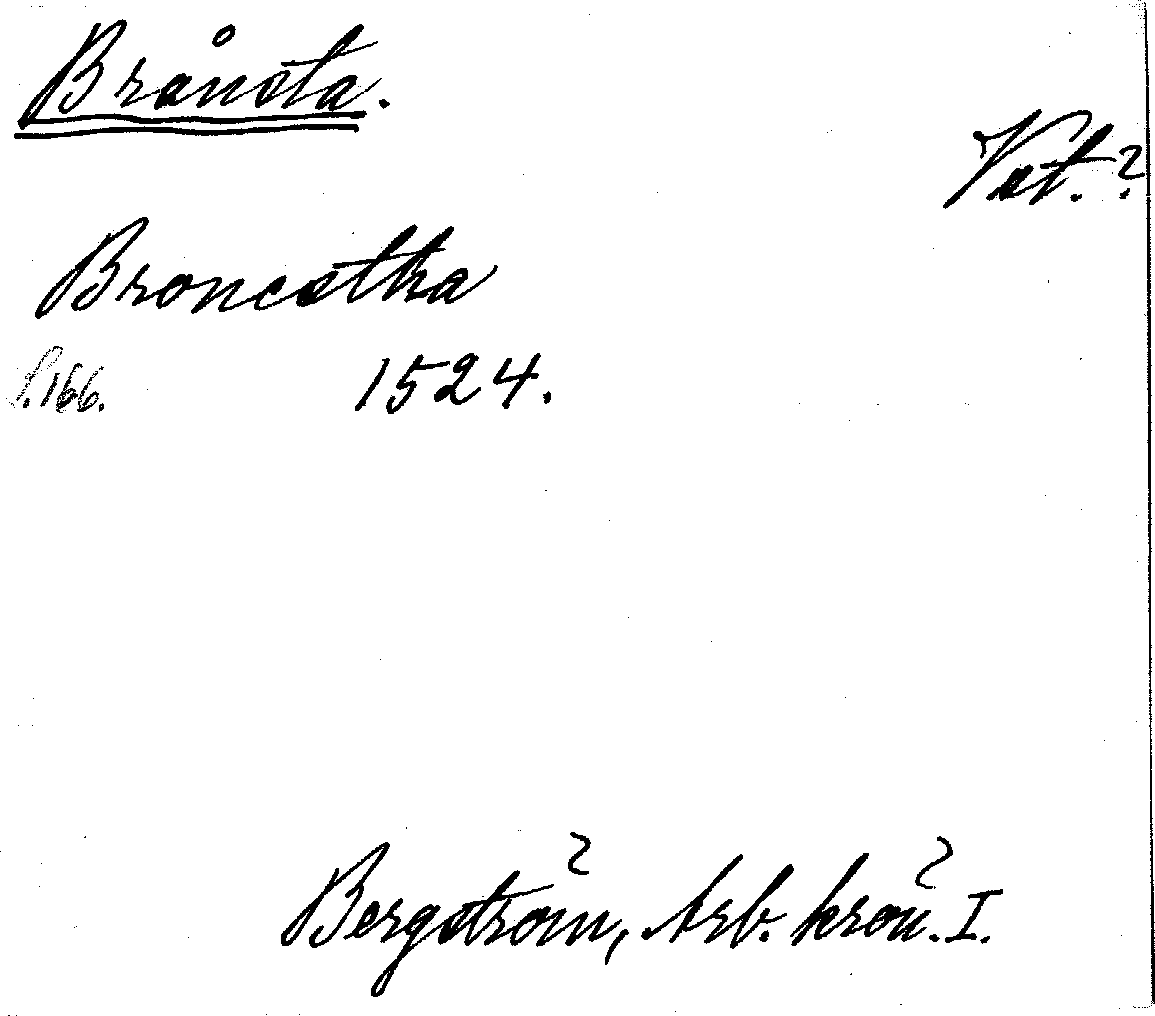 Brånsta.
Vat.?
Broncstha
S. 166. 1524.
Bergström, Arb. krön. I.